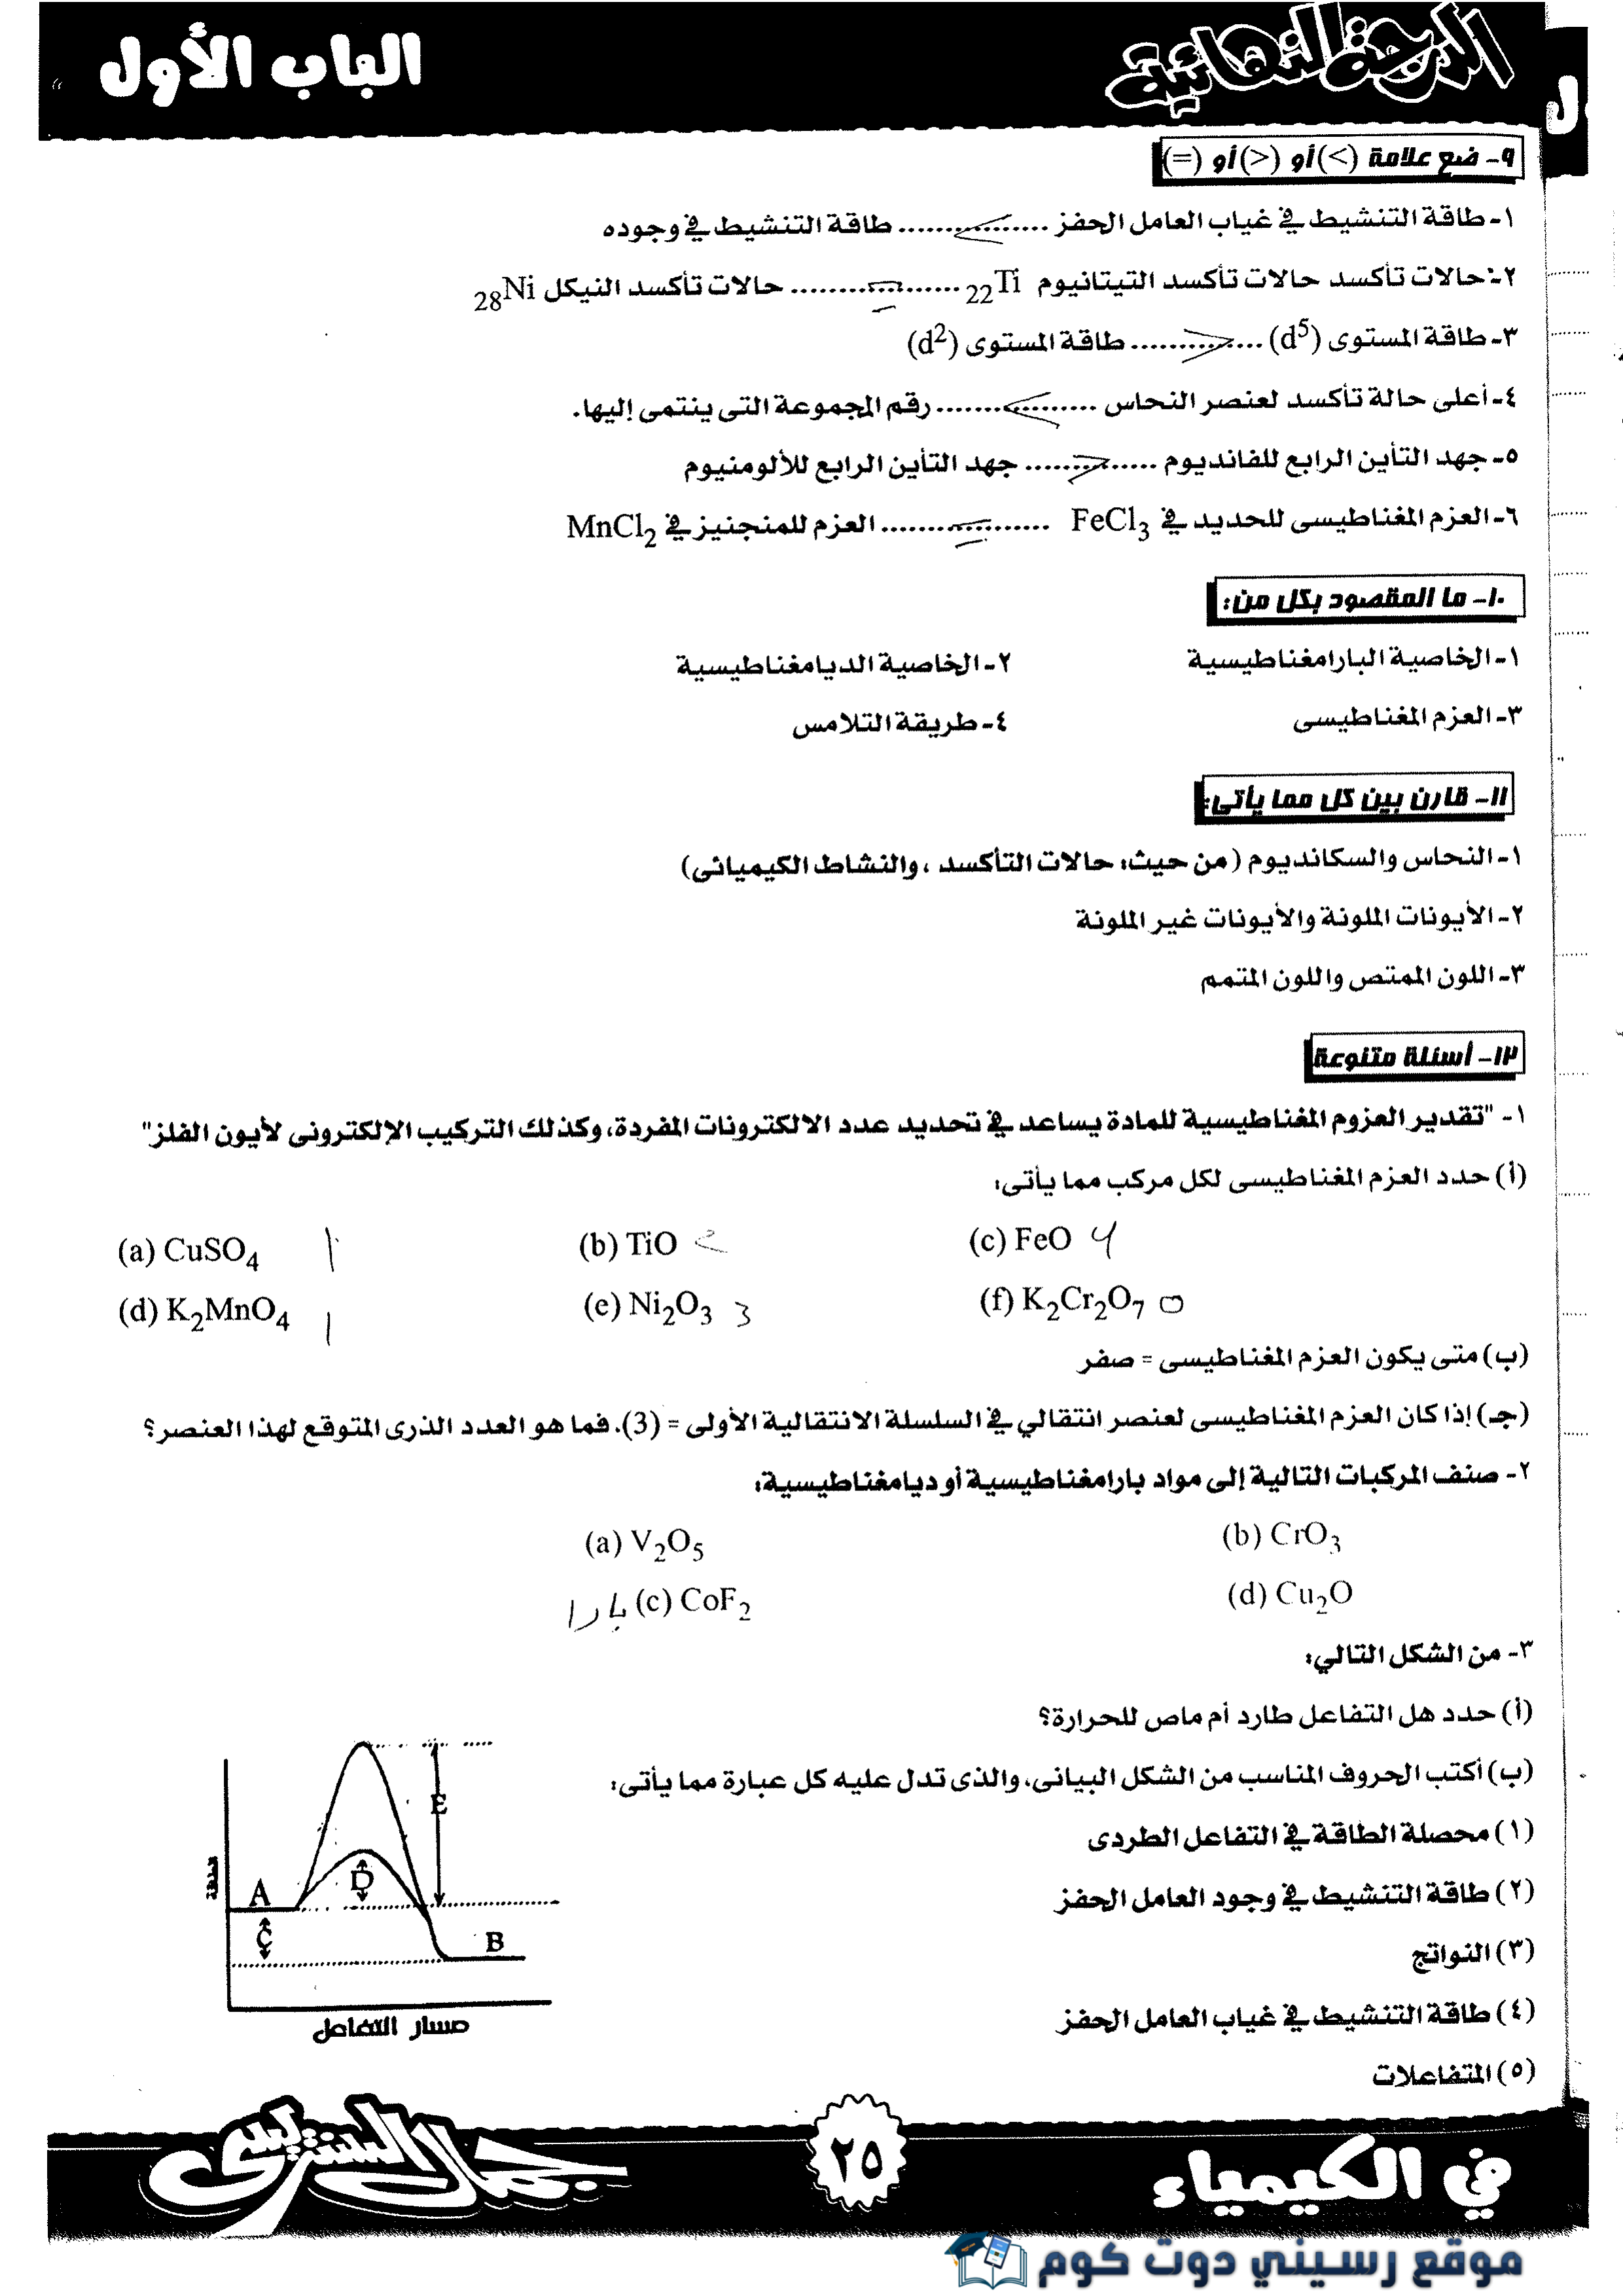 الدرجة النهائية
الباب الأول
٩- ضع علامة (>) أو (<) أو (=)
١- طاقة التنشيط في غياب العامل الحفز ................ طاقة التنشيط في وجوده
٢- حالات تأكسد حالات تأكسد التيتانيوم 22Ti .................. حالات تأكسد النيكل 28Ni
٣- طاقة المستوى (d5) .............. طاقة المستوى (d2)
٤- أعلى حالة تأكسد لعنصر النحاس ................. رقم المجموعة التى ينتمى إليها.
٥- جهد التأين الرابع للفانديوم .............. جهد التأين الرابع للألومنيوم
٦- العزم المغناطيسى للحديد في FeCl3 .................. العزم للمنجنيز في MnCl2
١٠- ما المقصود بكل من:
١- الخاصية البارامغناطيسية ٢- الخاصية الديامغناطيسية
٣- العزم المغناطيسى ٤- طريقة التلامس
١١- قارن بين كل مما يأتى:
١- النحاس والسكانديوم (من حيث: حالات التأكسد ، والنشاط الكيميائى)
٢- الأيونات الملونة والأيونات غير الملونة
٣- اللون الممتص واللون المتمم
١٢- أسئلة متنوعة
١- "تقدير العزوم المغناطيسية للمادة يساعد في تحديد عدد الالكترونات المفردة، وكذلك التركيب الإلكترونى لأيون الفلز"
(أ) حدد العزم المغناطيسى لكل مركب مما يأتى:
(a) CuSO4 1 (b) TiO 2 (c) FeO 4
(d) K2MnO4 1 (e) Ni2O3 3 (f) K2Cr2O7 0
(ب) متى يكون العزم المغناطيسى = صفر
(جـ) إذا كان العزم المغناطيسى لعنصر انتقالي في السلسلة الانتقالية الأولى = (3). فما هو العدد الذرى المتوقع لهذا العنصر؟
٢- صنف المركبات التالية إلى مواد بارامغناطيسية أو ديامغناطيسية:
(a) V2O5 (b) CrO3
بارا (c) CoF2 (d) Cu2O
٣- من الشكل التالي:
(أ) حدد هل التفاعل طارد أم ماص للحرارة؟
(ب) أكتب الحروف المناسب من الشكل البيانى، والذى تدل عليه كل عبارة مما يأتى:
(١) محصلة الطاقة في التفاعل الطردى
(٢) طاقة التنشيط في وجود العامل الحفز
(٣) النواتج
(٤) طاقة التنشيط في غياب العامل الحفز
(٥) المتفاعلات
E
D
A
C
B
الطاقة
مسار التفاعل
في الكيمياء
٢٥
جمال السنتريسى
موقع رسيني دوت كوم